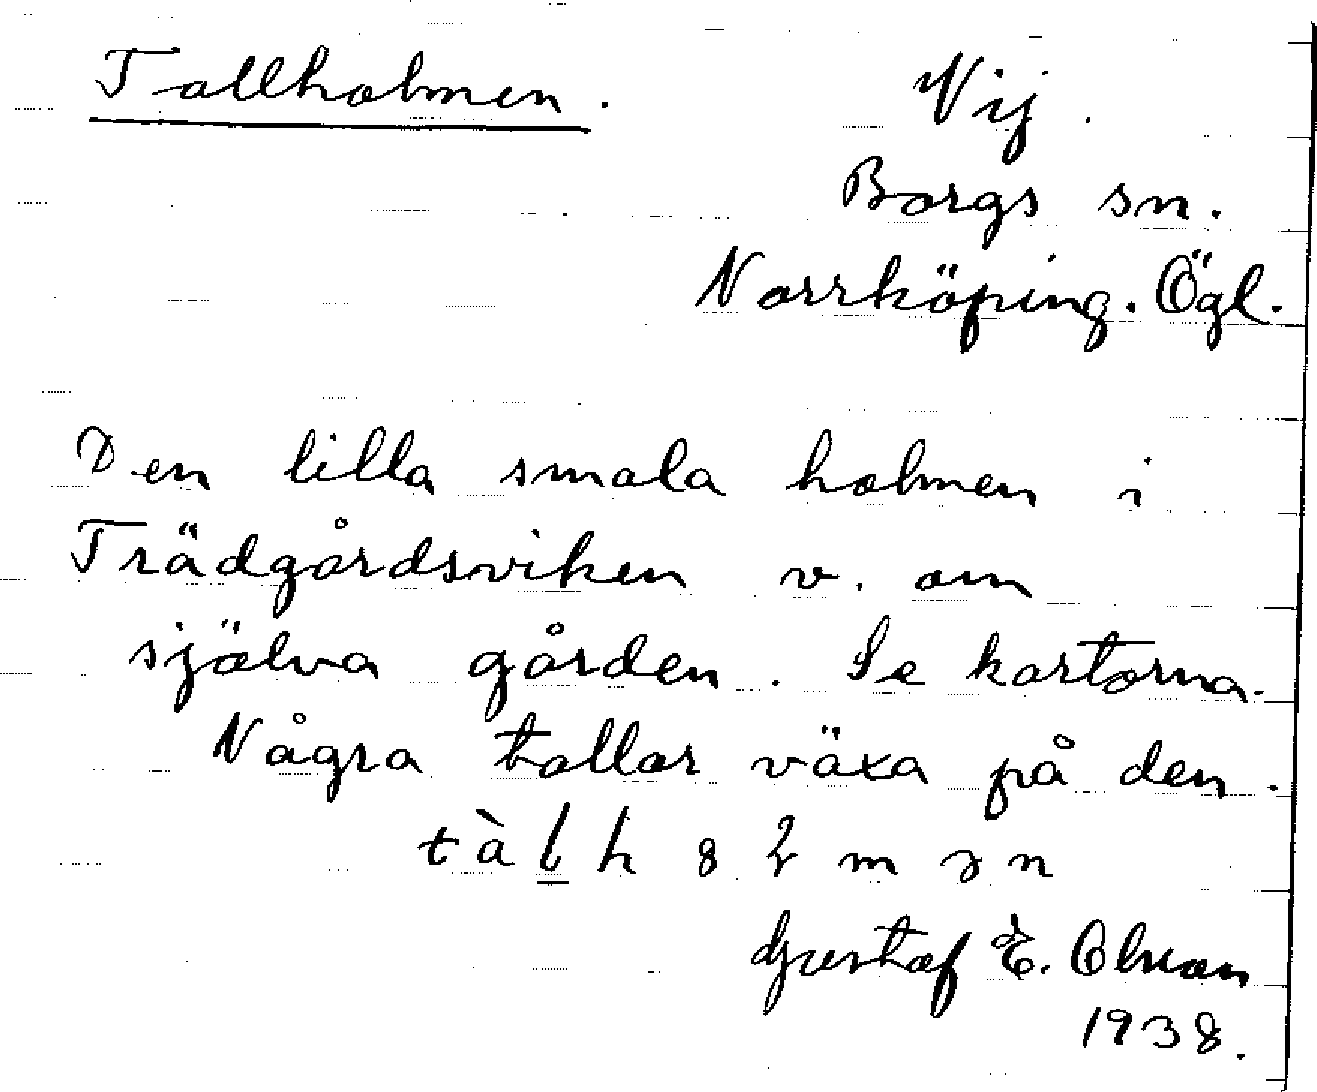 Tallholmen. Vij.
Borgs sn.
Norrköping. Ögl.
Den lilla smala holmen i
Trädgårdsviken v. om
själva gården. Se kartorna.
Några tallar växa på den.
tàl̲h
Gustaf E. Olsson
1938.